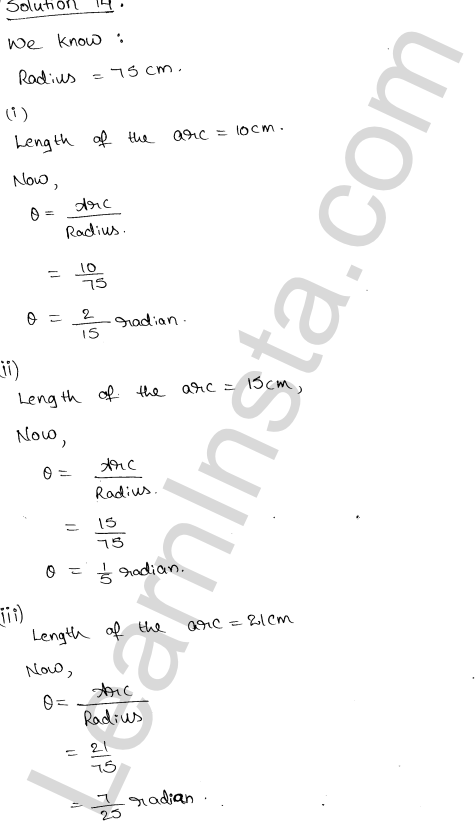 Solution 14.
We know :
Radius = 75 cm.
(i)
Length of the arc = 10cm.
Now,
θ = Arc / Radius.
= 10/75
θ = 2/15 radian.
ii)
Length of the arc = 15cm,
Now,
θ = Arc / Radius.
= 15/75
θ = 1/5 radian.
iii)
Length of the arc = 21cm
Now,
θ = Arc / Radius
= 21/75
= 7/25 radian.
LearnInsta.com